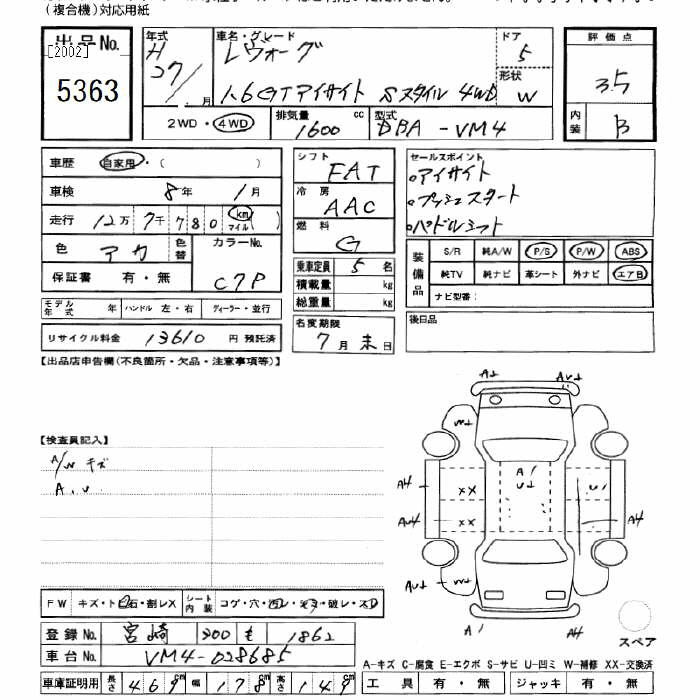 (複合機)対応用紙
出品No.
[2002]
5363
年式
H
27/
月
車名・グレード
レヴォーグ
1.6GTアイサイト Sスタイル 4WD
ドア
5
形状
W
2WD・4WD
排気量
1600
cc
型式
DBA-VM4
評価点
3.5
内装
B
車歴
自家用・( )
車検
8年 1月
走行
12万 7千 780 km マイル( )
色
アカ
色替
カラーNo.
C7P
保証書 有・無
モデル年式 年 ハンドル 左・右 ディーラー・並行
リサイクル料金 13610 円 預託済
シフト
FAT
冷房
AAC
燃料
G
乗車定員 5 名
積載量 kg
総重量 kg
名変期限
7月末日
セールスポイント
アイサイト
プッシュスタート
パドルシフト
装備品
S/R 純A/W P/S P/W ABS
純TV 純ナビ 革シート 外ナビ エアB
ナビ型番:
後日品
【出品店申告欄(不良箇所・欠品・注意事項等)】
【検査員記入】
A/W キズ
A.U
FW キズ・ト石・割レX
シート内装 コゲ・穴・汚レ・・破レ・スレ
登録No. 宮崎 300 も 1862
車台No. VM4-028685
車庫証明用 長さ 469 幅 178 高さ 149
A
A
A1
A4
XX
A4
AU4
XX
A1
A4
スペア
A-キズ C-腐食 E-エクボ S-サビ U-凹ミ W-補修 XX-交換済
工具 有・無 ジャッキ 有・無